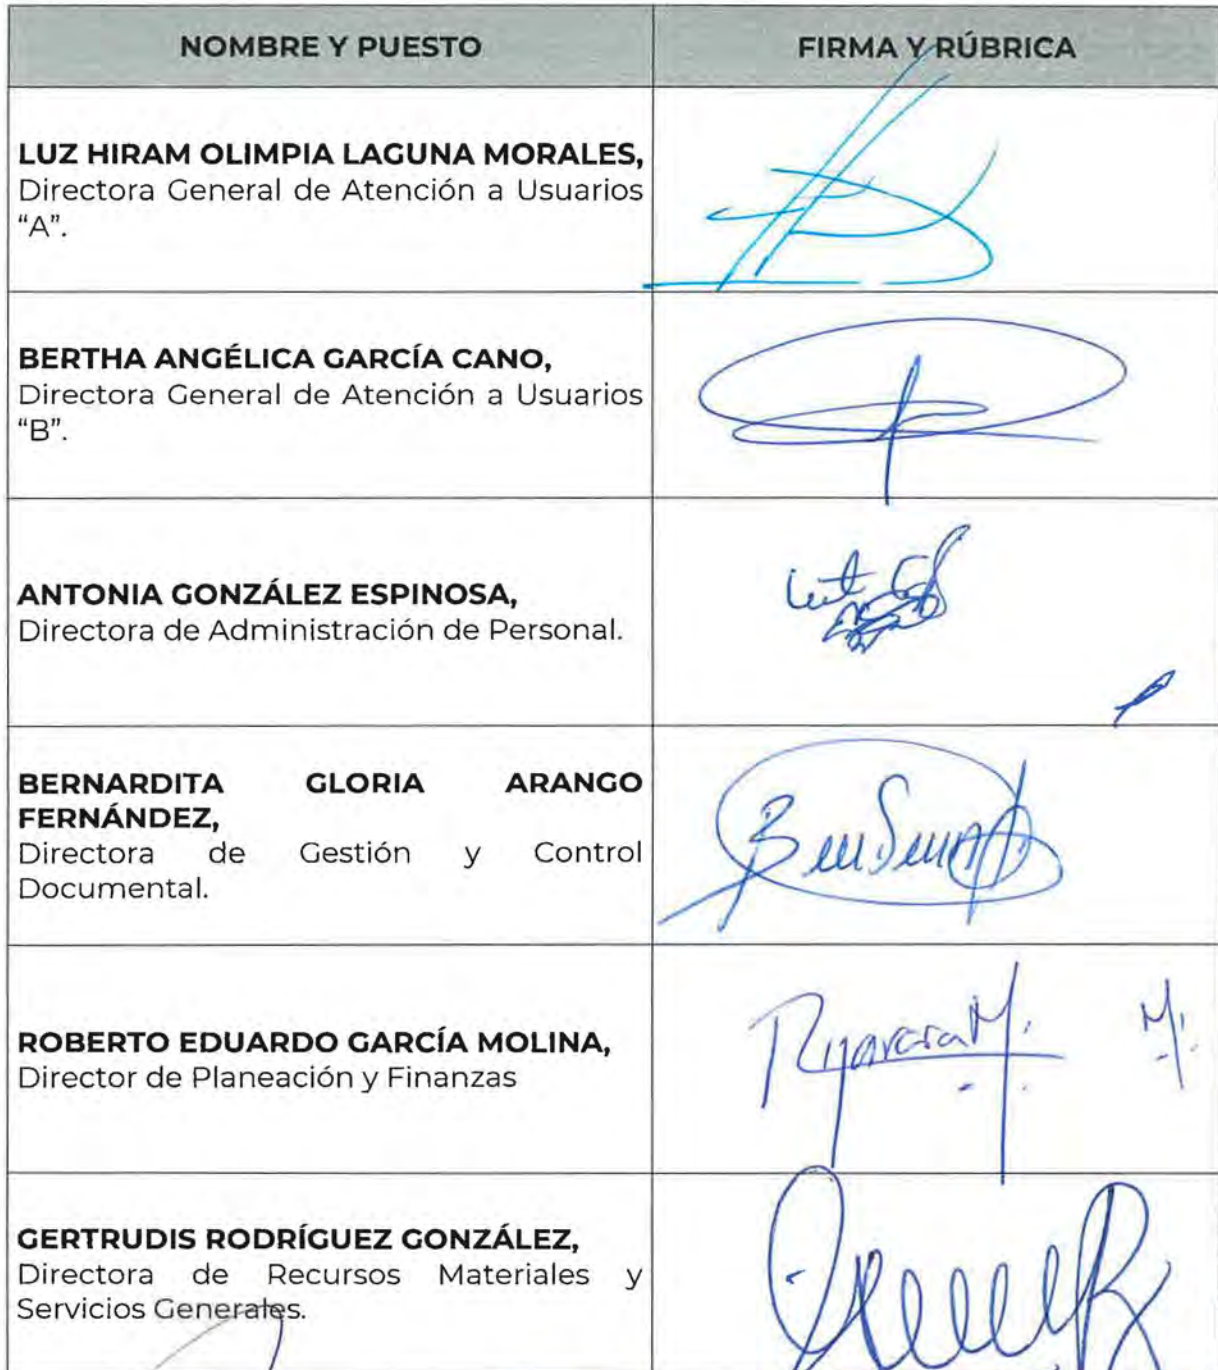 NOMBRE Y PUESTO
FIRMA Y RÚBRICA
LUZ HIRAM OLIMPIA LAGUNA MORALES,
Directora General de Atención a Usuarios
“A”.
BERTHA ANGÉLICA GARCÍA CANO,
Directora General de Atención a Usuarios
“B”.
ANTONIA GONZÁLEZ ESPINOSA,
Directora de Administración de Personal.
BERNARDITA GLORIA ARANGO
FERNÁNDEZ,
Directora de Gestión y Control
Documental.
ROBERTO EDUARDO GARCÍA MOLINA,
Director de Planeación y Finanzas
GERTRUDIS RODRÍGUEZ GONZÁLEZ,
Directora de Recursos Materiales y
Servicios Generales.